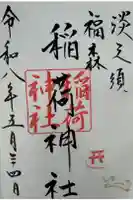 淡之須
福森
稲荷神社
稲荷
神社
令和八年五月二四日